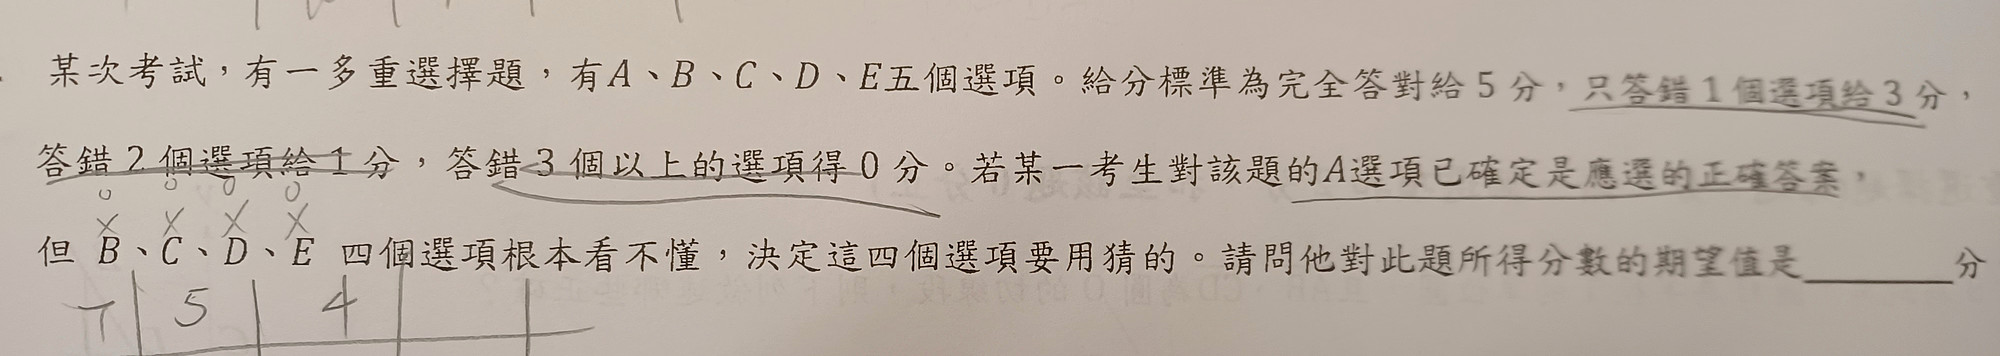 某次考試，有一多重選擇題，有A、B、C、D、E五個選項。給分標準為完全答對給5分，只答錯1個選項給3分，
答錯2個選項給1分，答錯3個以上的選項得0分。若某一考生對該題的A選項已確定是應選的正確答案，
O O O O
X X X X
但 B、C、D、E 四個選項根本看不懂，決定這四個選項要用猜的。請問他對此題所得分數的期望值是______分
T 5 4